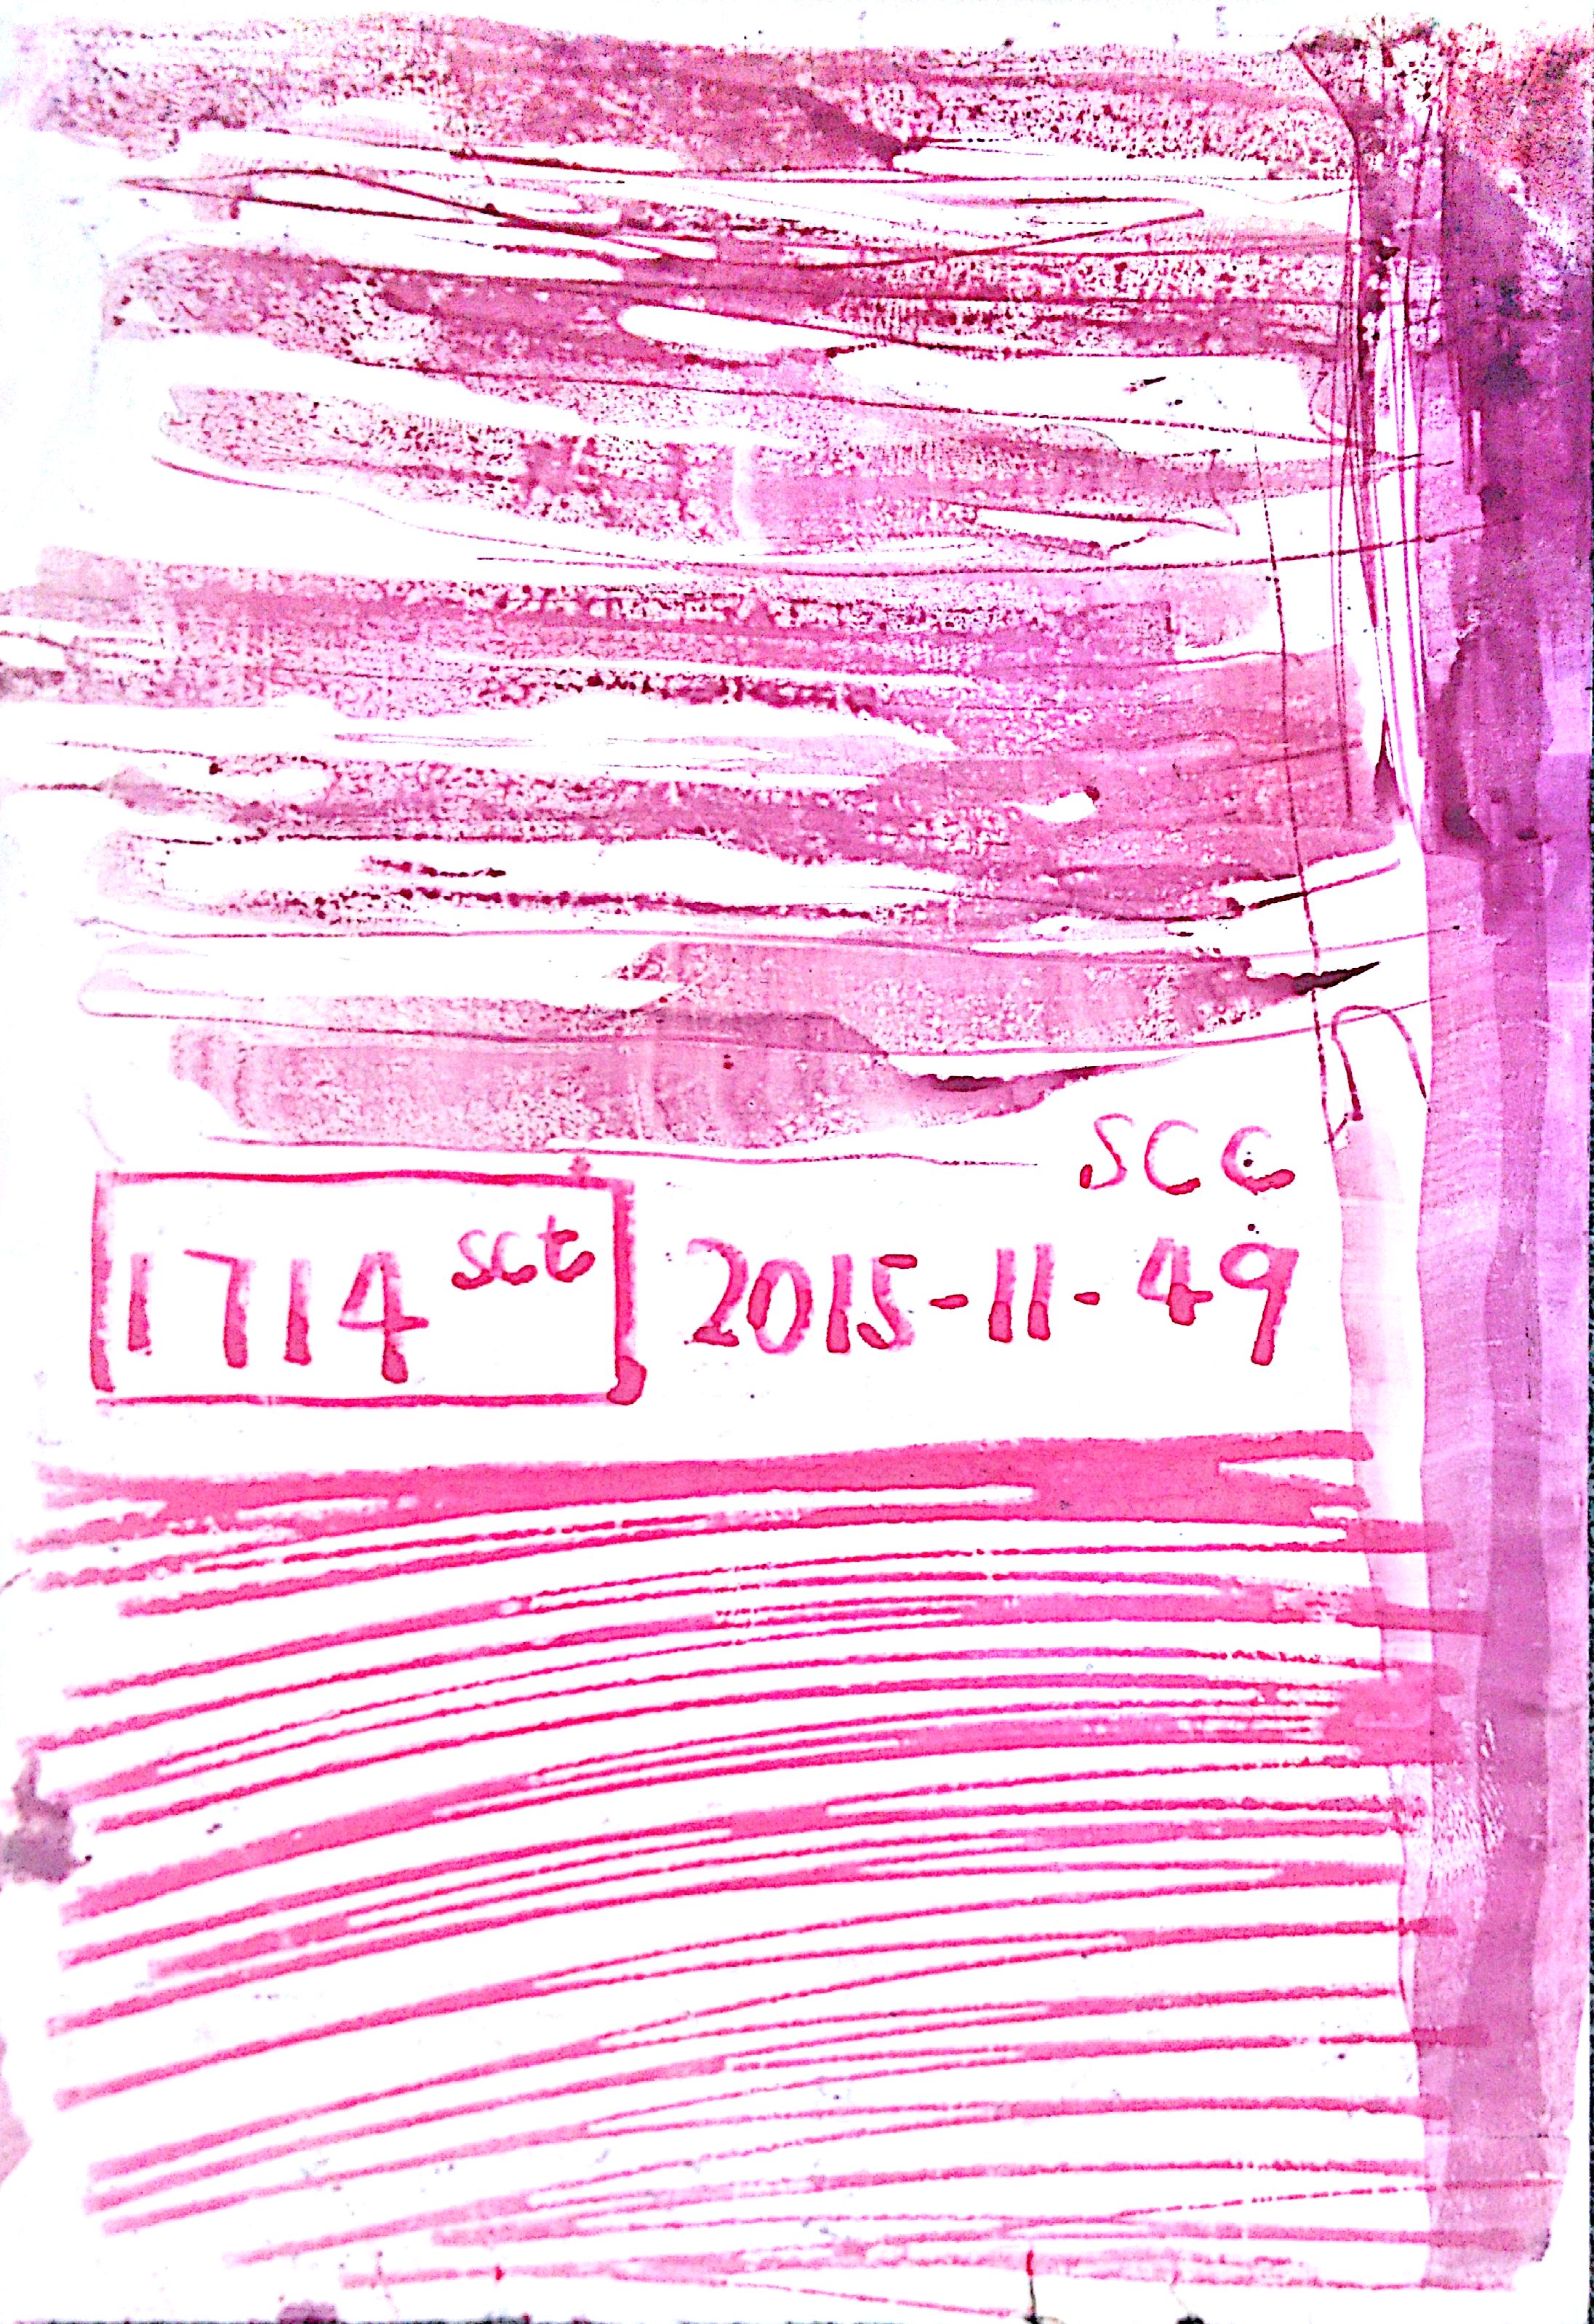 SCC
1714 sct 2015-11-49